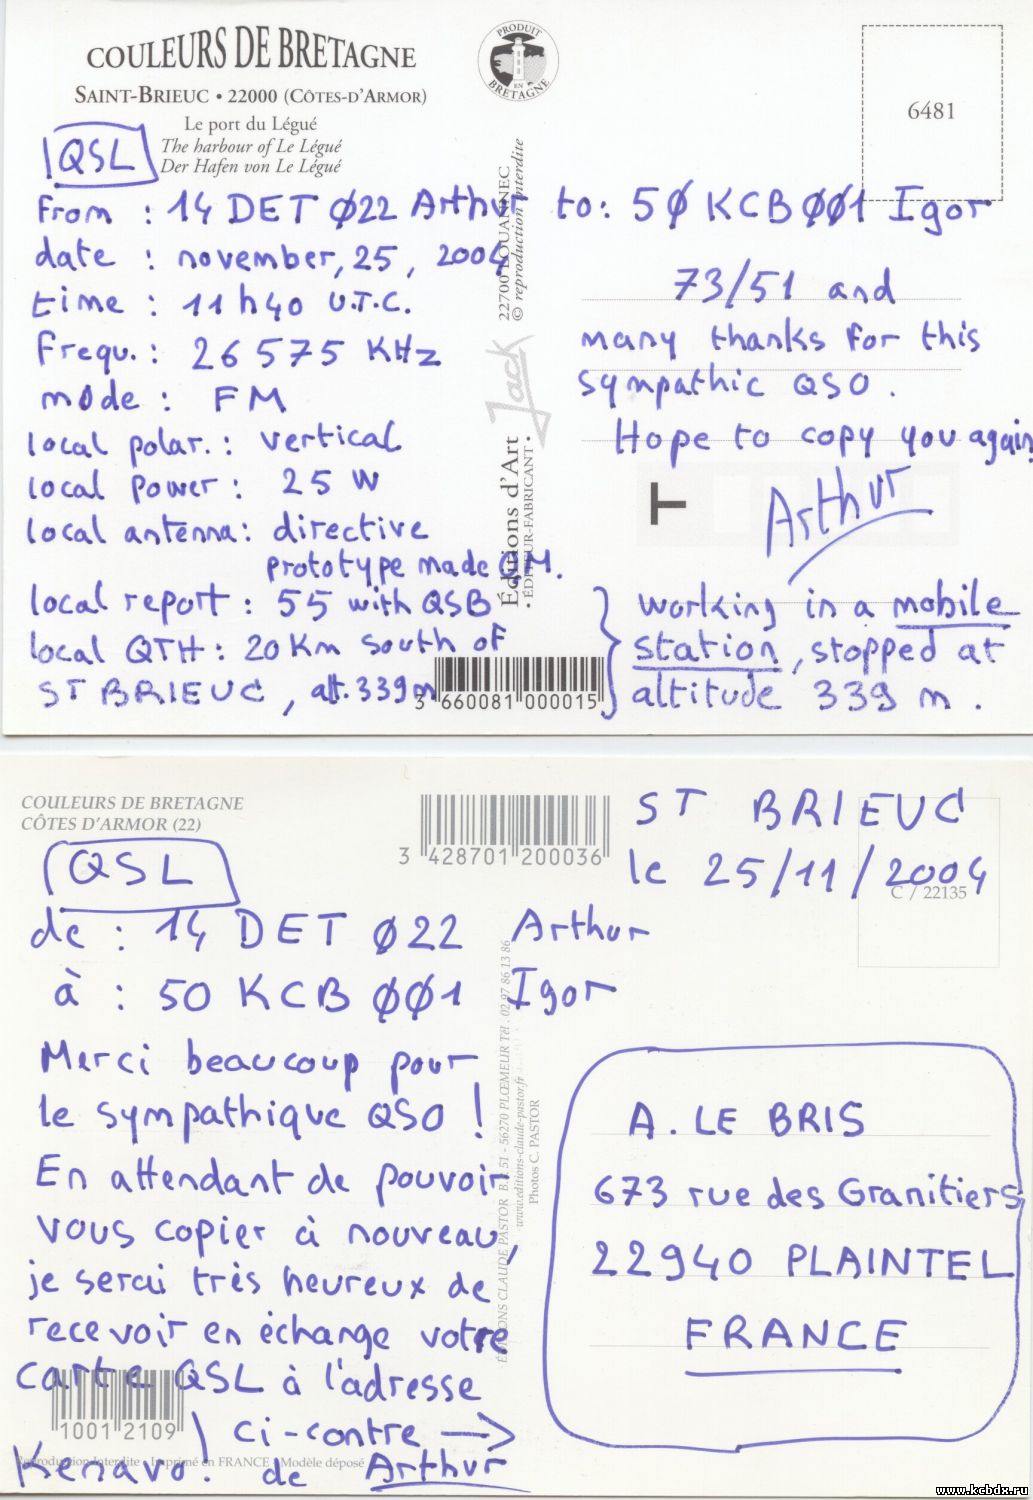 COULEURS DE BRETAGNE
SAINT-BRIEUC • 22000 (CÔTES-D'ARMOR)
Le port du Légué
The harbour of Le Légué
Der Hafen von Le Légué
PRODUIT EN BRETAGNE
6481
QSL
From : 14 DET Ø22 Arthur to: 5Ø KCB ØØ1 Igor
date : november, 25, 2004
time : 11 h 40 U.T.C.
Frequ. : 26 575 KHz
mode : FM
local polar. : vertical
local power : 25 W
local antenna : directive
prototype made O.M.
local report : 55 with QSB
local QTH : 20 Km south of
ST BRIEUC, alt. 339 m
73/51 and
many thanks for this
sympathic QSO.
Hope to copy you again
Arthur
working in a mobile
station, stopped at
altitude 339 m.
22700 LOUANNEC
© reproduction interdite
Jack
Éditions d'Art
• ÉDITEUR-FABRICANT •
T
3 660081 000015
COULEURS DE BRETAGNE
CÔTES D'ARMOR (22)
3 428701 200036
ST BRIEUC
le 25/11/2004
C / 22135
QSL
de : 14 DET Ø22 Arthur
à : 50 KCB ØØ1 Igor
Merci beaucoup pour
le sympathique QSO !
En attendant de pouvoir
vous copier à nouveau,
je serai très heureux de
recevoir en échange votre
carte QSL à l'adresse
ci-contre →
Kenavo ! de Arthur
1001 2109
Reproduction Interdite - Imprimé en FRANCE - Modèle déposé
ÉDITIONS CLAUDE PASTOR B.P. 51 - 56270 PLŒMEUR Tél. 02 97 86 13 86
www.editions-claude-pastor.fr
Photos C. PASTOR
A. LE BRIS
673 rue des Granitiers
22940 PLAINTEL
FRANCE
www.kcbdx.ru